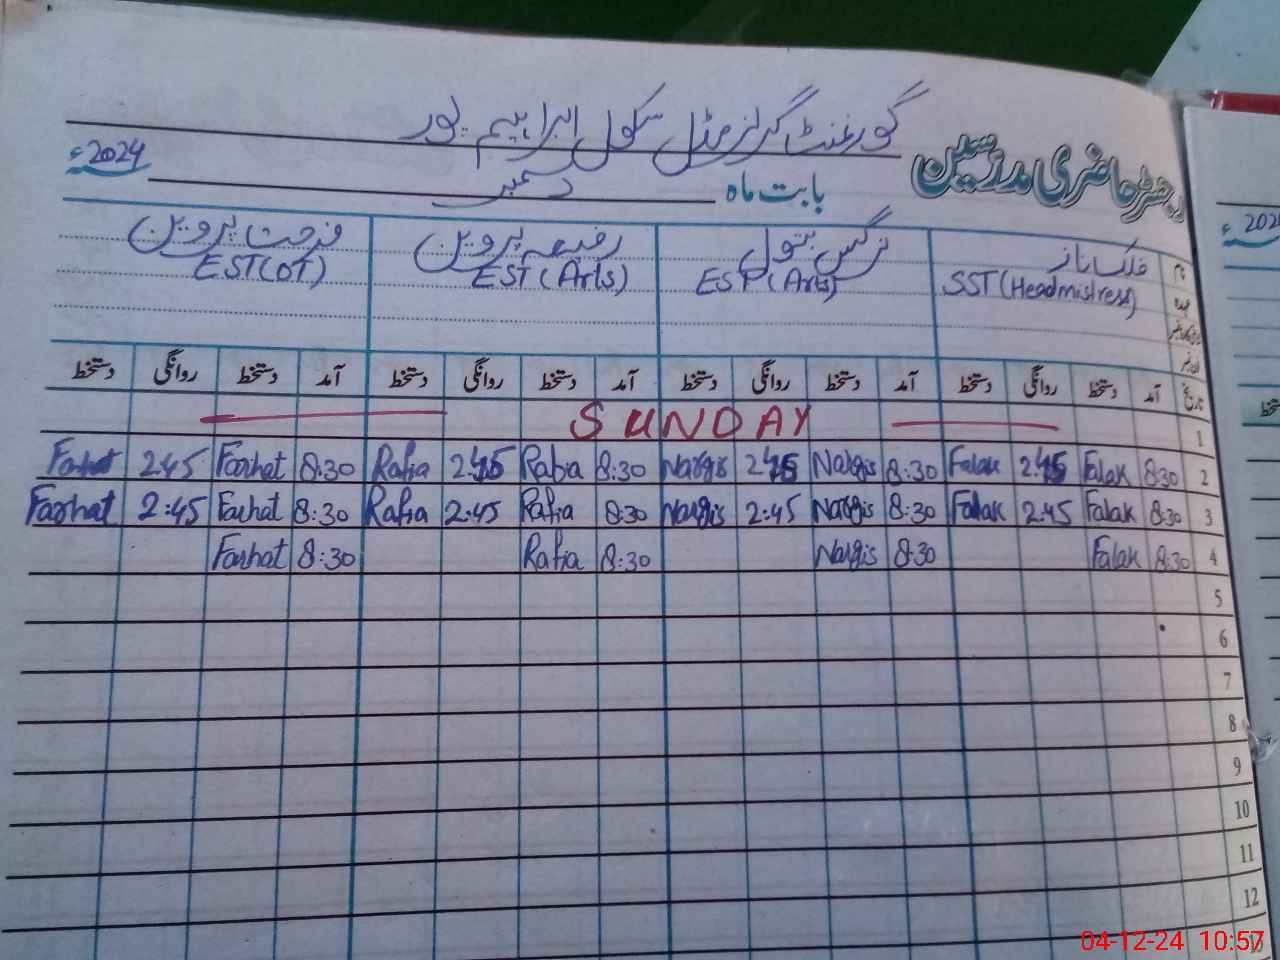 رجسٹر حاضری مدرسین
گورنمنٹ گرلز مڈل سکول ابراہیم پور
بابت ماہ دسمبر 2024ء
نام فلک ناز نرگس بتول رفیعہ پروین فرحت پروین
عہدہ SST (Headmistress) EST (Arts) EST (Arts) EST (DT)
تاریخ آمد دستخط روانگی دستخط آمد دستخط روانگی دستخط آمد دستخط روانگی دستخط آمد دستخط روانگی دستخط
1 SUNDAY
2 8:30 Falak 2:45 Falak 8:30 Nargis 2:45 Nargis 8:30 Rafia 2:45 Rafia 8:30 Farhat 2:45 Farhat
3 8:30 Falak 2:45 Falak 8:30 Nargis 2:45 Nargis 8:30 Rafia 2:45 Rafia 8:30 Farhat 2:45 Farhat
4 8:30 Falak 8:30 Nargis 8:30 Rafia 8:30 Farhat
5
6
7
8
9
10
11
12
13
04-12-24 10:57